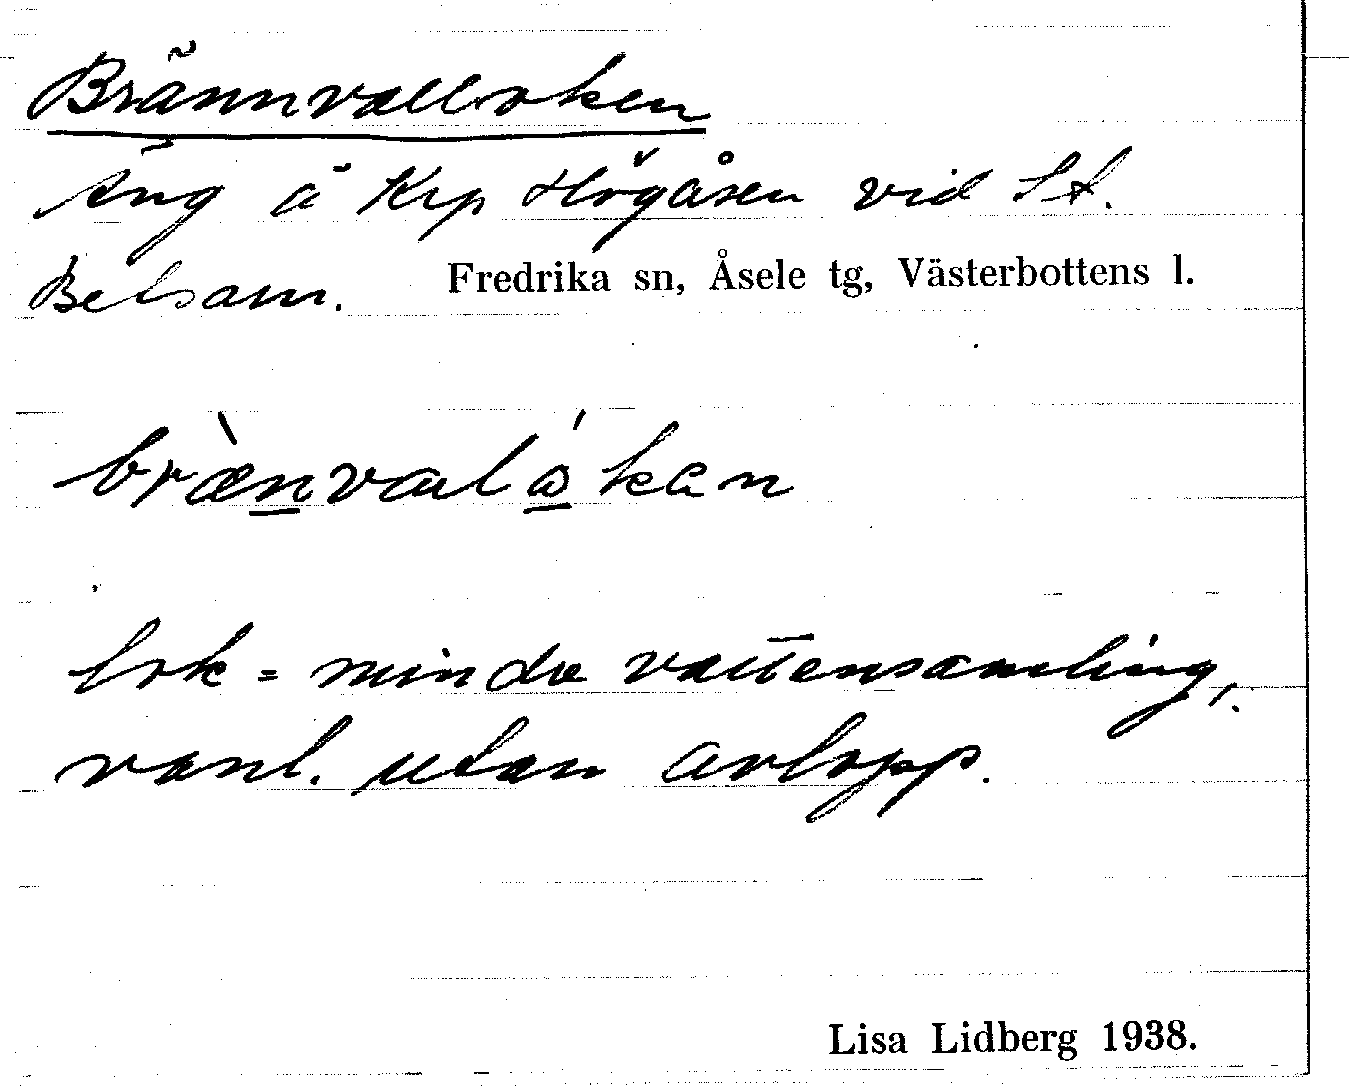 Brännvalloken
Äng å Krp Högåsen vid St.
Betsarn. Fredrika sn, Åsele tg, Västerbottens l.
brænvalåkan
lok = mindre vattensamling,
vanl. utan avlopp.
Lisa Lidberg 1938.